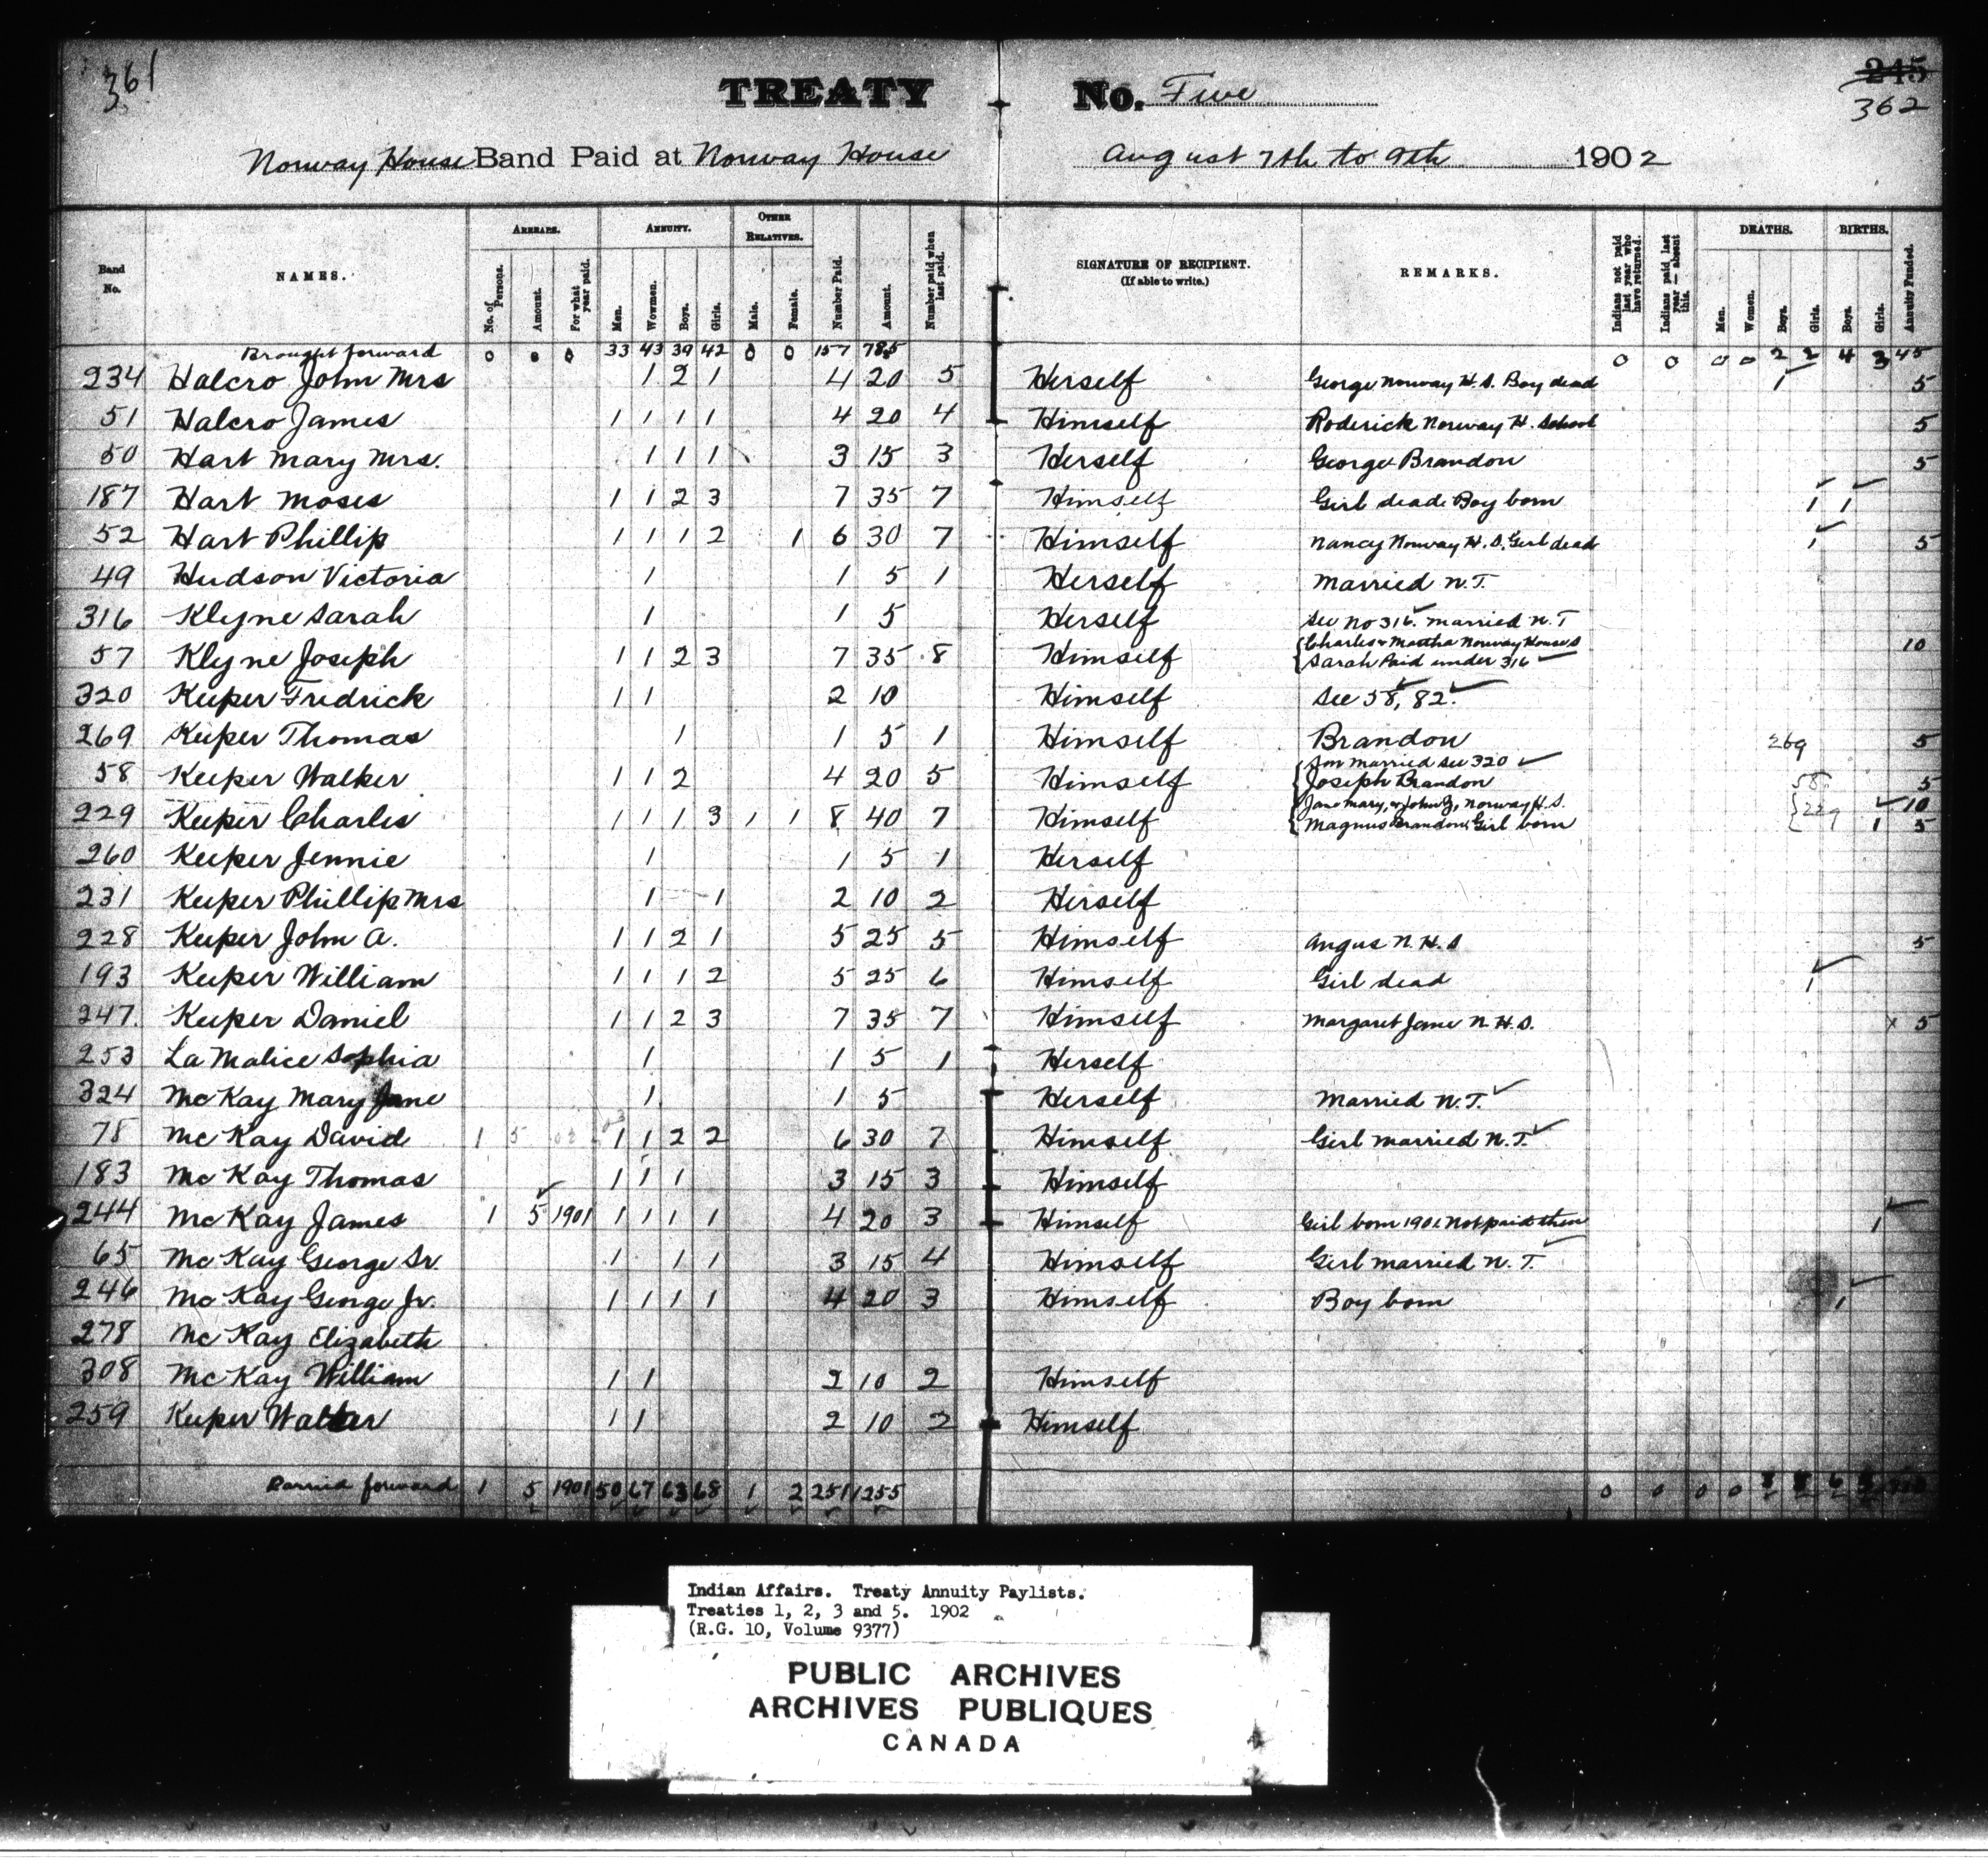 361
TREATY No. Five
245
362
Norway House Band Paid at Norway House August 7th to 9th 1902
Band No. NAMES. ARREARS. ANNUITY. OTHER RELATIVES. Number Paid. Amount. Number paid when last paid. SIGNATURE OF RECIPIENT. (If able to write.) REMARKS. Indians not paid last year who have returned. Indians paid last year — absent this. DEATHS. BIRTHS. Annuity Funded.
No. of Persons. Amount. For what year paid. Men. Women. Boys. Girls. Male. Female. Men. Women. Boys. Girls. Boys. Girls.
Brought forward 0 0 0 33 43 39 42 0 0 157 785 0 0 0 0 2 2 4 3 45
234 Halcro John Mrs 1 2 1 4 20 5 Herself George Norway H.S. Boy dead 1 5
51 Halcro James 1 1 1 1 4 20 4 Himself Roderick Norway H. School 5
50 Hart Mary Mrs. 1 1 1 3 15 3 Herself George Brandon 5
187 Hart Moses 1 1 2 3 7 35 7 Himself Girl dead Boy born 1 1
52 Hart Phillip 1 1 1 2 1 6 30 7 Himself Nancy Norway H.S. Girl dead 1 5
49 Hudson Victoria 1 1 5 1 Herself Married N.T.
316 Klyne Sarah 1 1 5 Herself See No 316. Married N.T
57 Klyne Joseph 1 1 2 3 7 35 8 Himself Charles & Martha Norway House S 10
Sarah Paid under 316
320 Keeper Fredrick 1 1 2 10 Himself See 58, 82.
269 Keeper Thomas 1 1 5 1 Himself Brandon 269 5
58 Keeper Walker 1 1 2 4 20 5 Himself Son Married See 320
Joseph Brandon 58 5
229 Keeper Charles 1 1 1 3 1 1 8 40 7 Himself Jane Mary, & John G, Norway H.S. 229 10
Magnus Brandon, Girl born 1 5
260 Keeper Jennie 1 1 5 1 Herself
231 Keeper Phillip Mrs 1 1 2 10 2 Herself
228 Keeper John A. 1 1 2 1 5 25 5 Himself Angus N.H.S 5
193 Keeper William 1 1 1 2 5 25 6 Himself Girl dead 1
247 Keeper Daniel 1 1 2 3 7 35 7 Himself Margaret Jane N.H.S. x 5
253 La Malice Sophia 1 1 5 1 Herself
324 McKay Mary Jane 1 1 5 Herself Married N.T.
78 McKay David 1 5 1 1 2 2 6 30 7 Himself Girl married N.T.
183 McKay Thomas 1 1 1 3 15 3 Himself
244 McKay James 1 5 1901 1 1 1 1 4 20 3 Himself Girl born 1901 Not paid then 1
65 McKay George Sr. 1 1 1 3 15 4 Himself Girl married N.T.
246 McKay George Jr. 1 1 1 1 4 20 3 Himself Boy born 1
278 McKay Elizabeth
308 McKay William 1 1 2 10 2 Himself
259 Keeper Walter 1 1 2 10 2 Himself
Carried forward 1 5 1901 50 67 63 68 1 2 251 1255 0 0 0 0 6
Indian Affairs. Treaty Annuity Paylists.
Treaties 1, 2, 3 and 5. 1902
(R.G. 10, Volume 9377)
PUBLIC ARCHIVES
ARCHIVES PUBLIQUES
CANADA